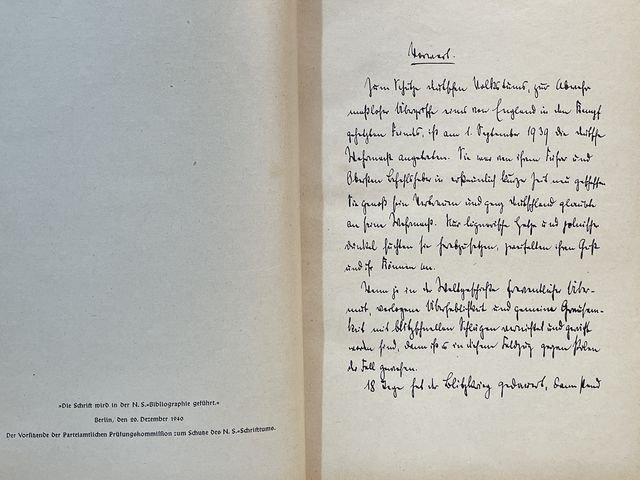 »Die Schrift wird in der N. S.=Bibliographie geführt.«
Berlin, den 20. Dezember 1940
Der Vorsitzende der Parteiamtlichen Prüfungskommission zum Schutze des N. S.=Schrifttums.
Vorwort.
Zum Schutze deutschen Volkstums, zur Abwehr
maßloser Übergriffe eines von England in den Kampf
gehetzten Feinds, ist am 1. September 1939 die deutsche
Wehrmacht angetreten. Sie war von ihrem Führer und
Obersten Befehlshaber in erstaunlich kurzer Zeit neu geschaffen
Sie genoß sein Vertrauen und ganz Deutschland glaubte
an seine Wehrmacht. Nur lügnerische Hetze und polnischer
Dünkel suchten sie herabzusetzen, zweifelten ihren Geist
und ihr Können an.
Wenn je in der Weltgeschichte freventlicher Über-
mut, verlogene Überheblichkeit und gemeine Grausam-
keit mit blitzschnellen Schlägen vernichtet und gerächt
worden sind, dann ist es in diesem Feldzug gegen Polen
der Fall gewesen.
18 Tage hat der Blitzkrieg gedauert, dann stand